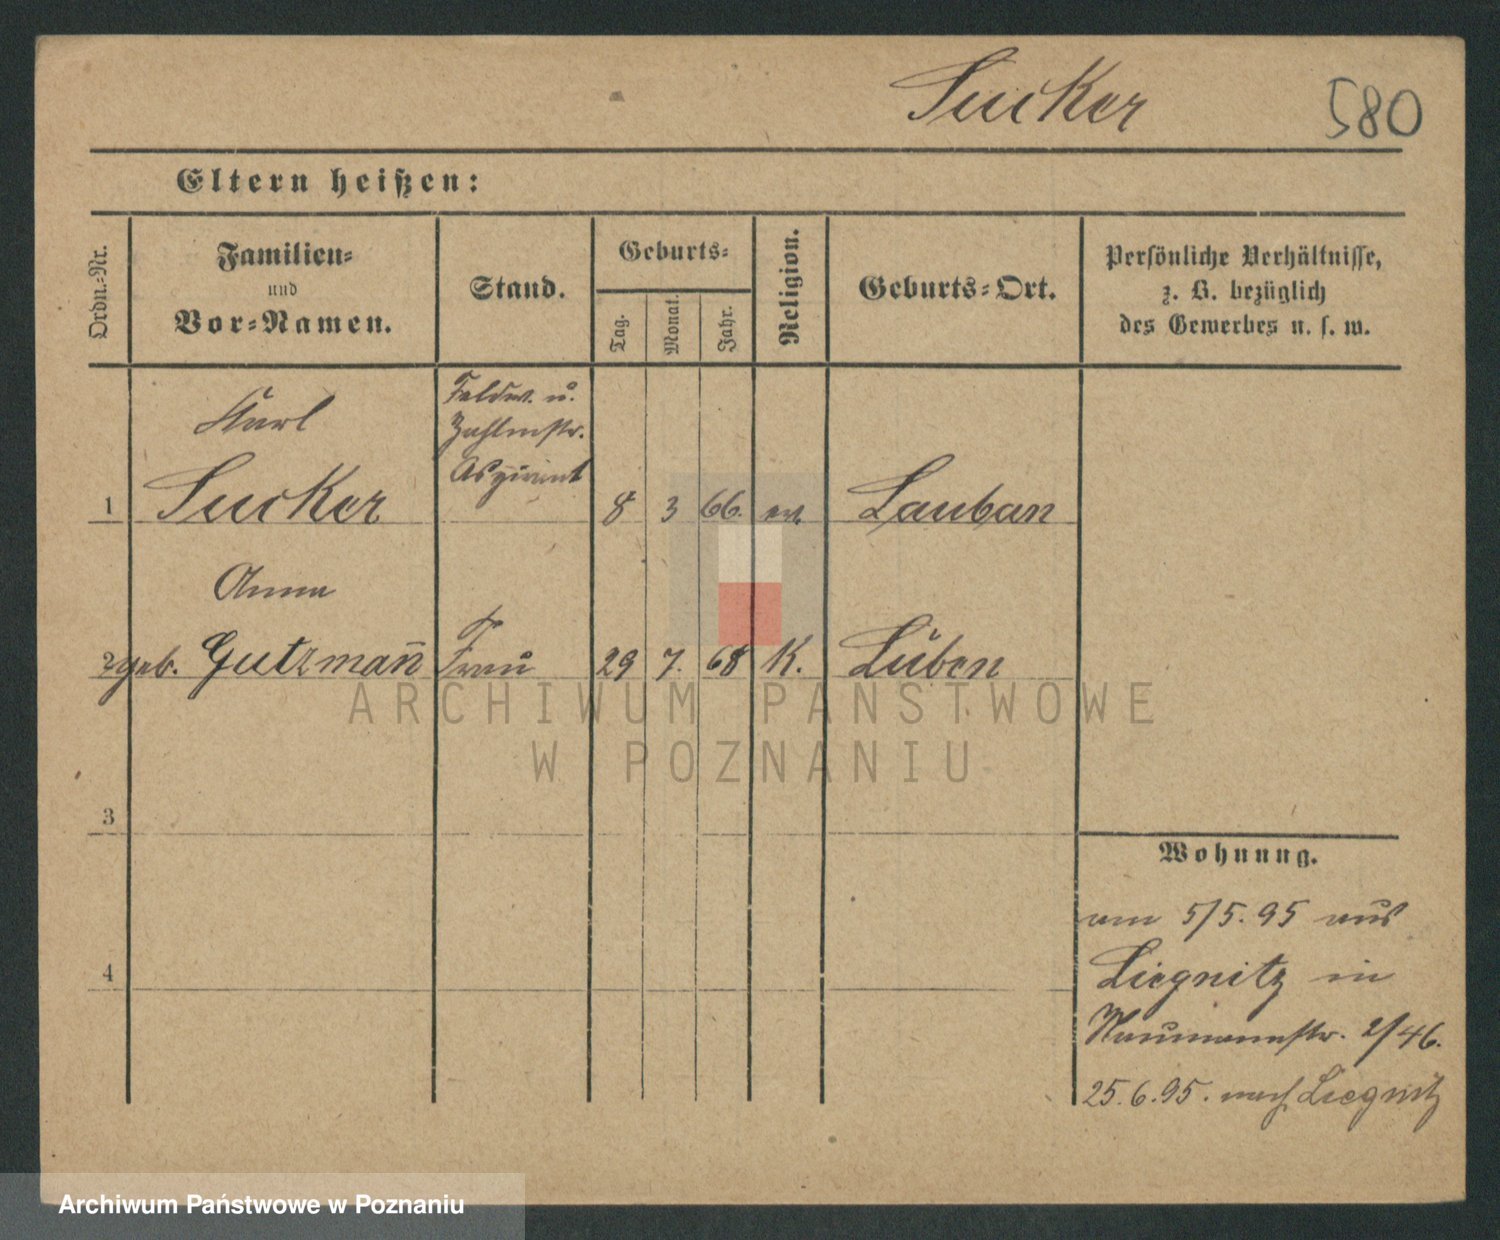 Sucker
580
Eltern heißen:
Ordn.-Nr.
Familien-
und
Vor-Namen.
Stand.
Geburts-
Tag.
Monat.
Jahr.
Religion.
Geburts-Ort.
Persönliche Verhältnisse,
z. B. bezüglich
des Gewerbes u. s. w.
Karl
Feldw. u.
Zahlmstr.
Aspirant
1 Sucker 8 3 66. ev. Lauban
Anna
2 geb. Gutzman̄ Frau 29 7. 68 K. Lüben
ARCHIWUM PAŃSTWOWE
W POZNANIU
3
Wohnung.
am 5/5. 95 aus
4
Liegnitz in
Naumannstr. 2/46.
25.6.95. nach Liegnitz
Archiwum Państwowe w Poznaniu